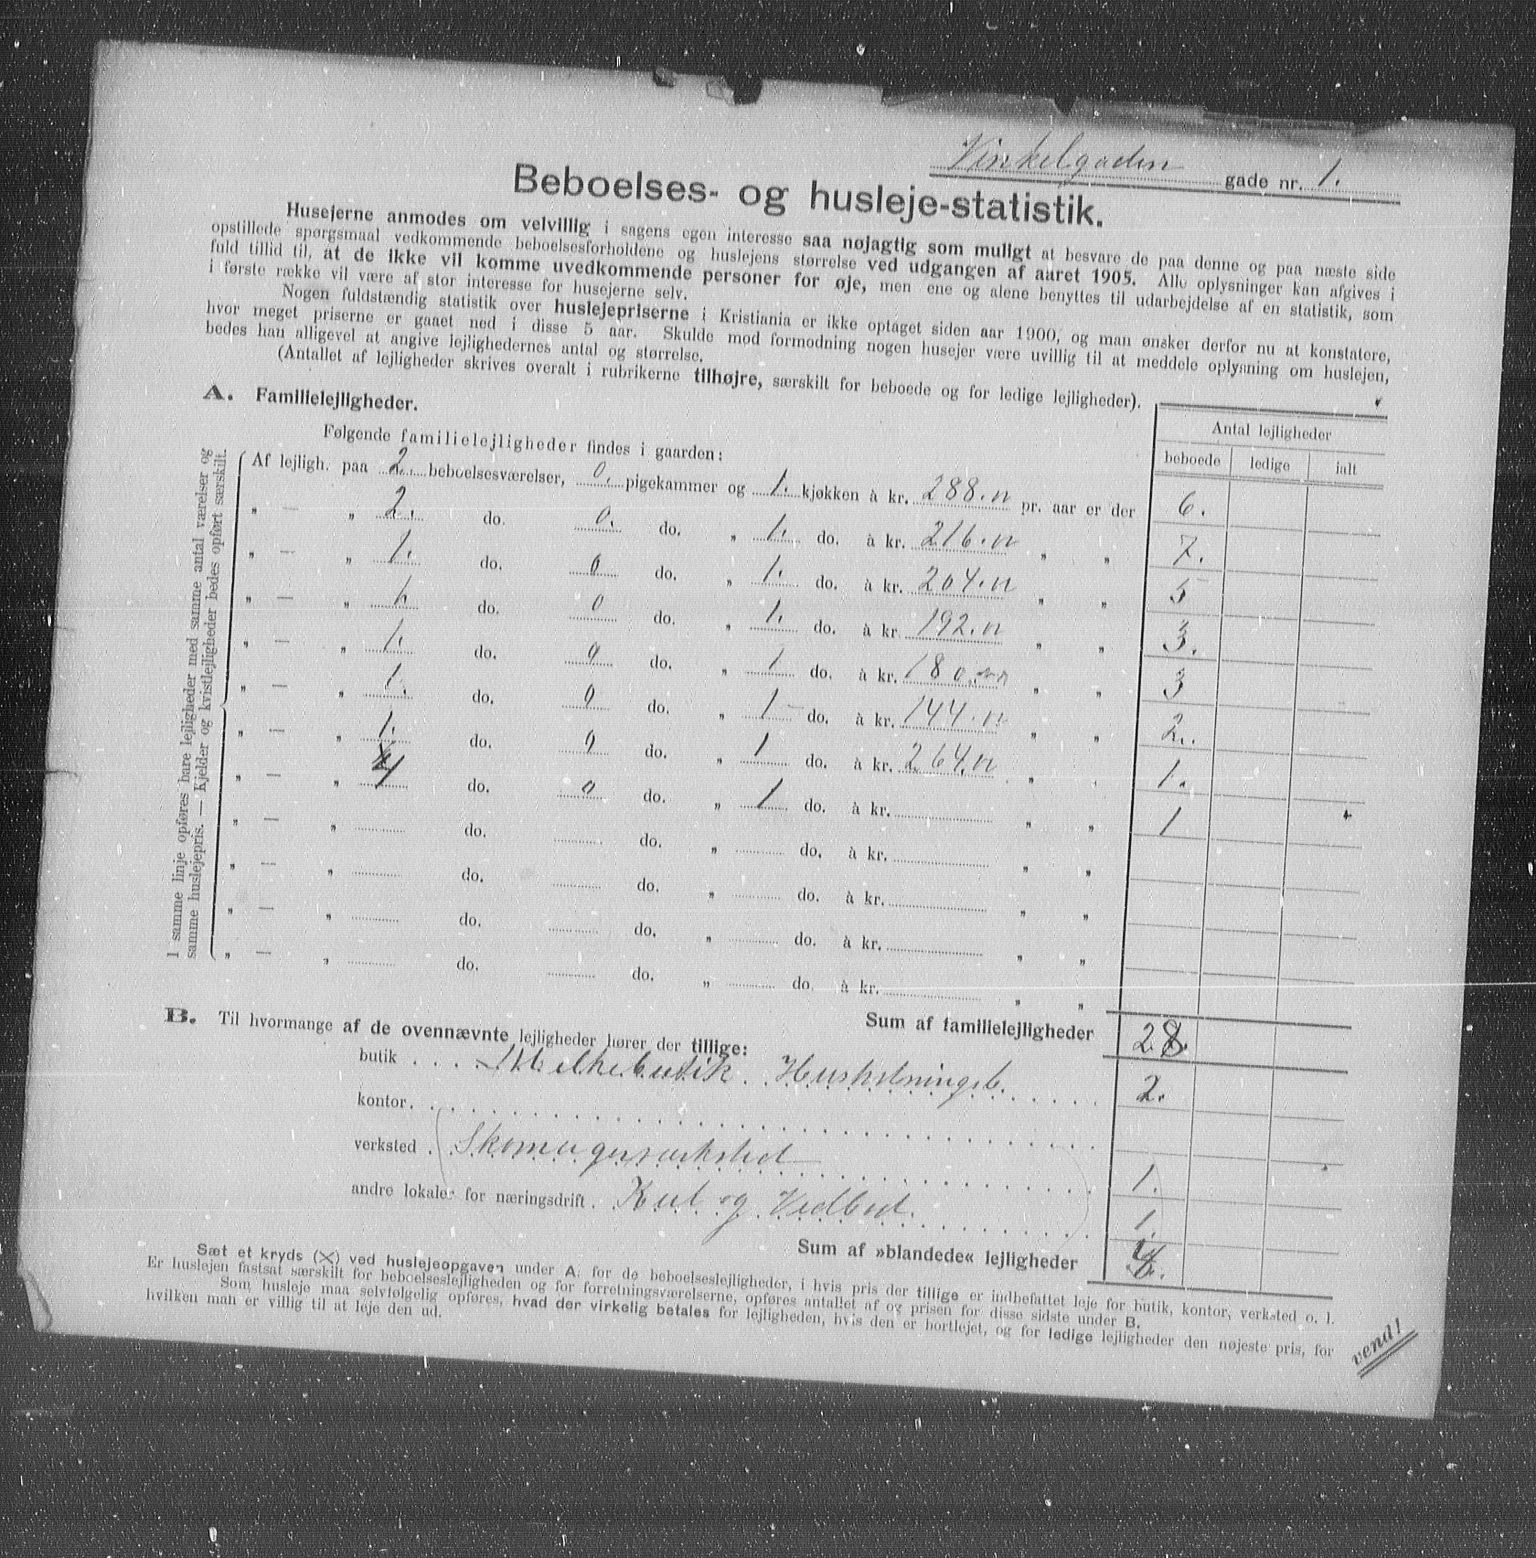 Vinkelgaden gade nr. 1.
Beboelses- og husleje-statistik.
Husejerne anmodes om velvillig i sagens egen interesse saa nøjagtig som muligt at besvare de paa denne og paa næste side
opstillede spørgsmaal vedkommende beboelsesforholdene og huslejens størrelse ved udgangen af aaret 1905. Alle oplysninger kan afgives i
fuld tillid til, at de ikke vil komme uvedkommende personer for øje, men ene og alene benyttes til udarbejdelse af en statistik, som
i første række vil være af stor interesse for husejerne selv.
Nogen fuldstændig statistik over huslejepriserne i Kristiania er ikke optaget siden aar 1900, og man ønsker derfor nu at konstatere,
hvor meget priserne er gaaet ned i disse 5 aar. Skulde mod formodning nogen husejer være uvillig til at meddele oplysning om huslejen,
bedes han alligevel at angive lejlighedernes antal og størrelse.
(Antallet af lejligheder skrives overalt i rubrikerne tilhøjre, særskilt for beboede og for ledige lejligheder).
A. Familielejligheder.
Antal lejligheder
beboede ledige ialt
Følgende familielejligheder findes i gaarden:
I samme linje opføres bare lejligheder med samme antal værelser og
samme huslejepris. — Kjelder og kvistlejligheder bedes opført særskilt.
Af lejligh. paa 2 beboelsesværelser, 0. pigekammer og 1. kjøkken à kr. 288.n pr. aar er der 6.
„ — „ 2. do. 0. do. „ 1. do. à kr. 216.n „ „ 7.
„ — „ 1. do. 0 do. „ 1. do. à kr. 204.n „ „ 5
„ — „ 1. do. 0 do. „ 1. do. à kr. 192.n „ „ 3.
„ — „ 1. do. 0 do. „ 1 do. à kr. 180. „ „ 3
„ — „ 1. do. 0 do. „ 1 do. à kr. 144.n „ „ 2.
„ — „ 1. do. 0 do. „ 1 do. à kr. 264.n „ „ 1.
„ — „ 4 do. 0 do. „ 1 do. à kr. „ „ 1
„ — „ do. do. „ do. à kr. „ „
„ — „ do. do. „ do. à kr. „ „
„ — „ do. do. „ do. à kr. „ „
„ — „ do. do. „ do. à kr. „ „
Sum af familielejligheder 28.
B. Til hvormange af de ovennævnte lejligheder hører der tillige:
butik Melkebutik. Husholningsb. 2.
kontor.
verksted Skomagerværksted 1.
andre lokaler for næringsdrift. Kul og Vedbod. 1.
Sum af »blandede« lejligheder
Sæt et kryds (X) ved huslejeopgaven under A. for de beboelseslejligheder, i hvis pris der tillige er indbefattet leje for butik, kontor, verksted o. l.
Er huslejen fastsat særskilt for beboelseslejligheden og for forretningsværelserne, opføres antallet af og prisen for disse sidste under B.
Som husleje maa selvfølgelig opføres, hvad der virkelig betales for lejligheden, hvis den er bortlejet, og for ledige lejligheder den nøjeste pris, for
hvilken man er villig til at leje den ud.
vend!